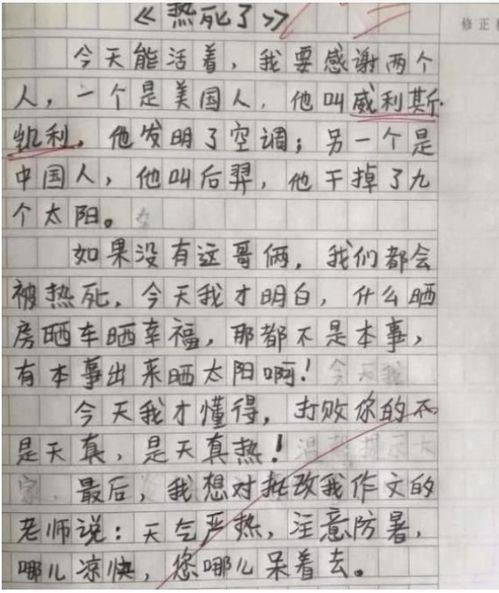 《热死了》
修正
今天能活着，我要感谢两个
人，一个是美国人，他叫威利斯
凯利，他发明了空调；另一个是
中国人，他叫后羿，他干掉了九
个太阳。
如果没有这哥俩，我们都会
被热死，今天我才明白，什么晒
房晒车晒幸福，那都不是本事，
有本事出来晒太阳啊！今天我
今天我才懂得，打败你的不
是天真，是天真热！
最后，我想对批改我作文的
老师说：天气严热，注意防暑，
哪儿凉快，您哪儿呆着去。